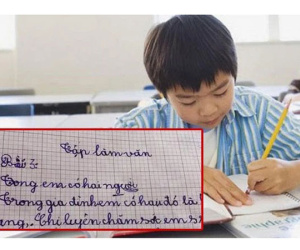 Tập làm văn
Bài 3:
Tong em có hai người
Trong gia dinh em có
ang, Chi luyên chăm sot em